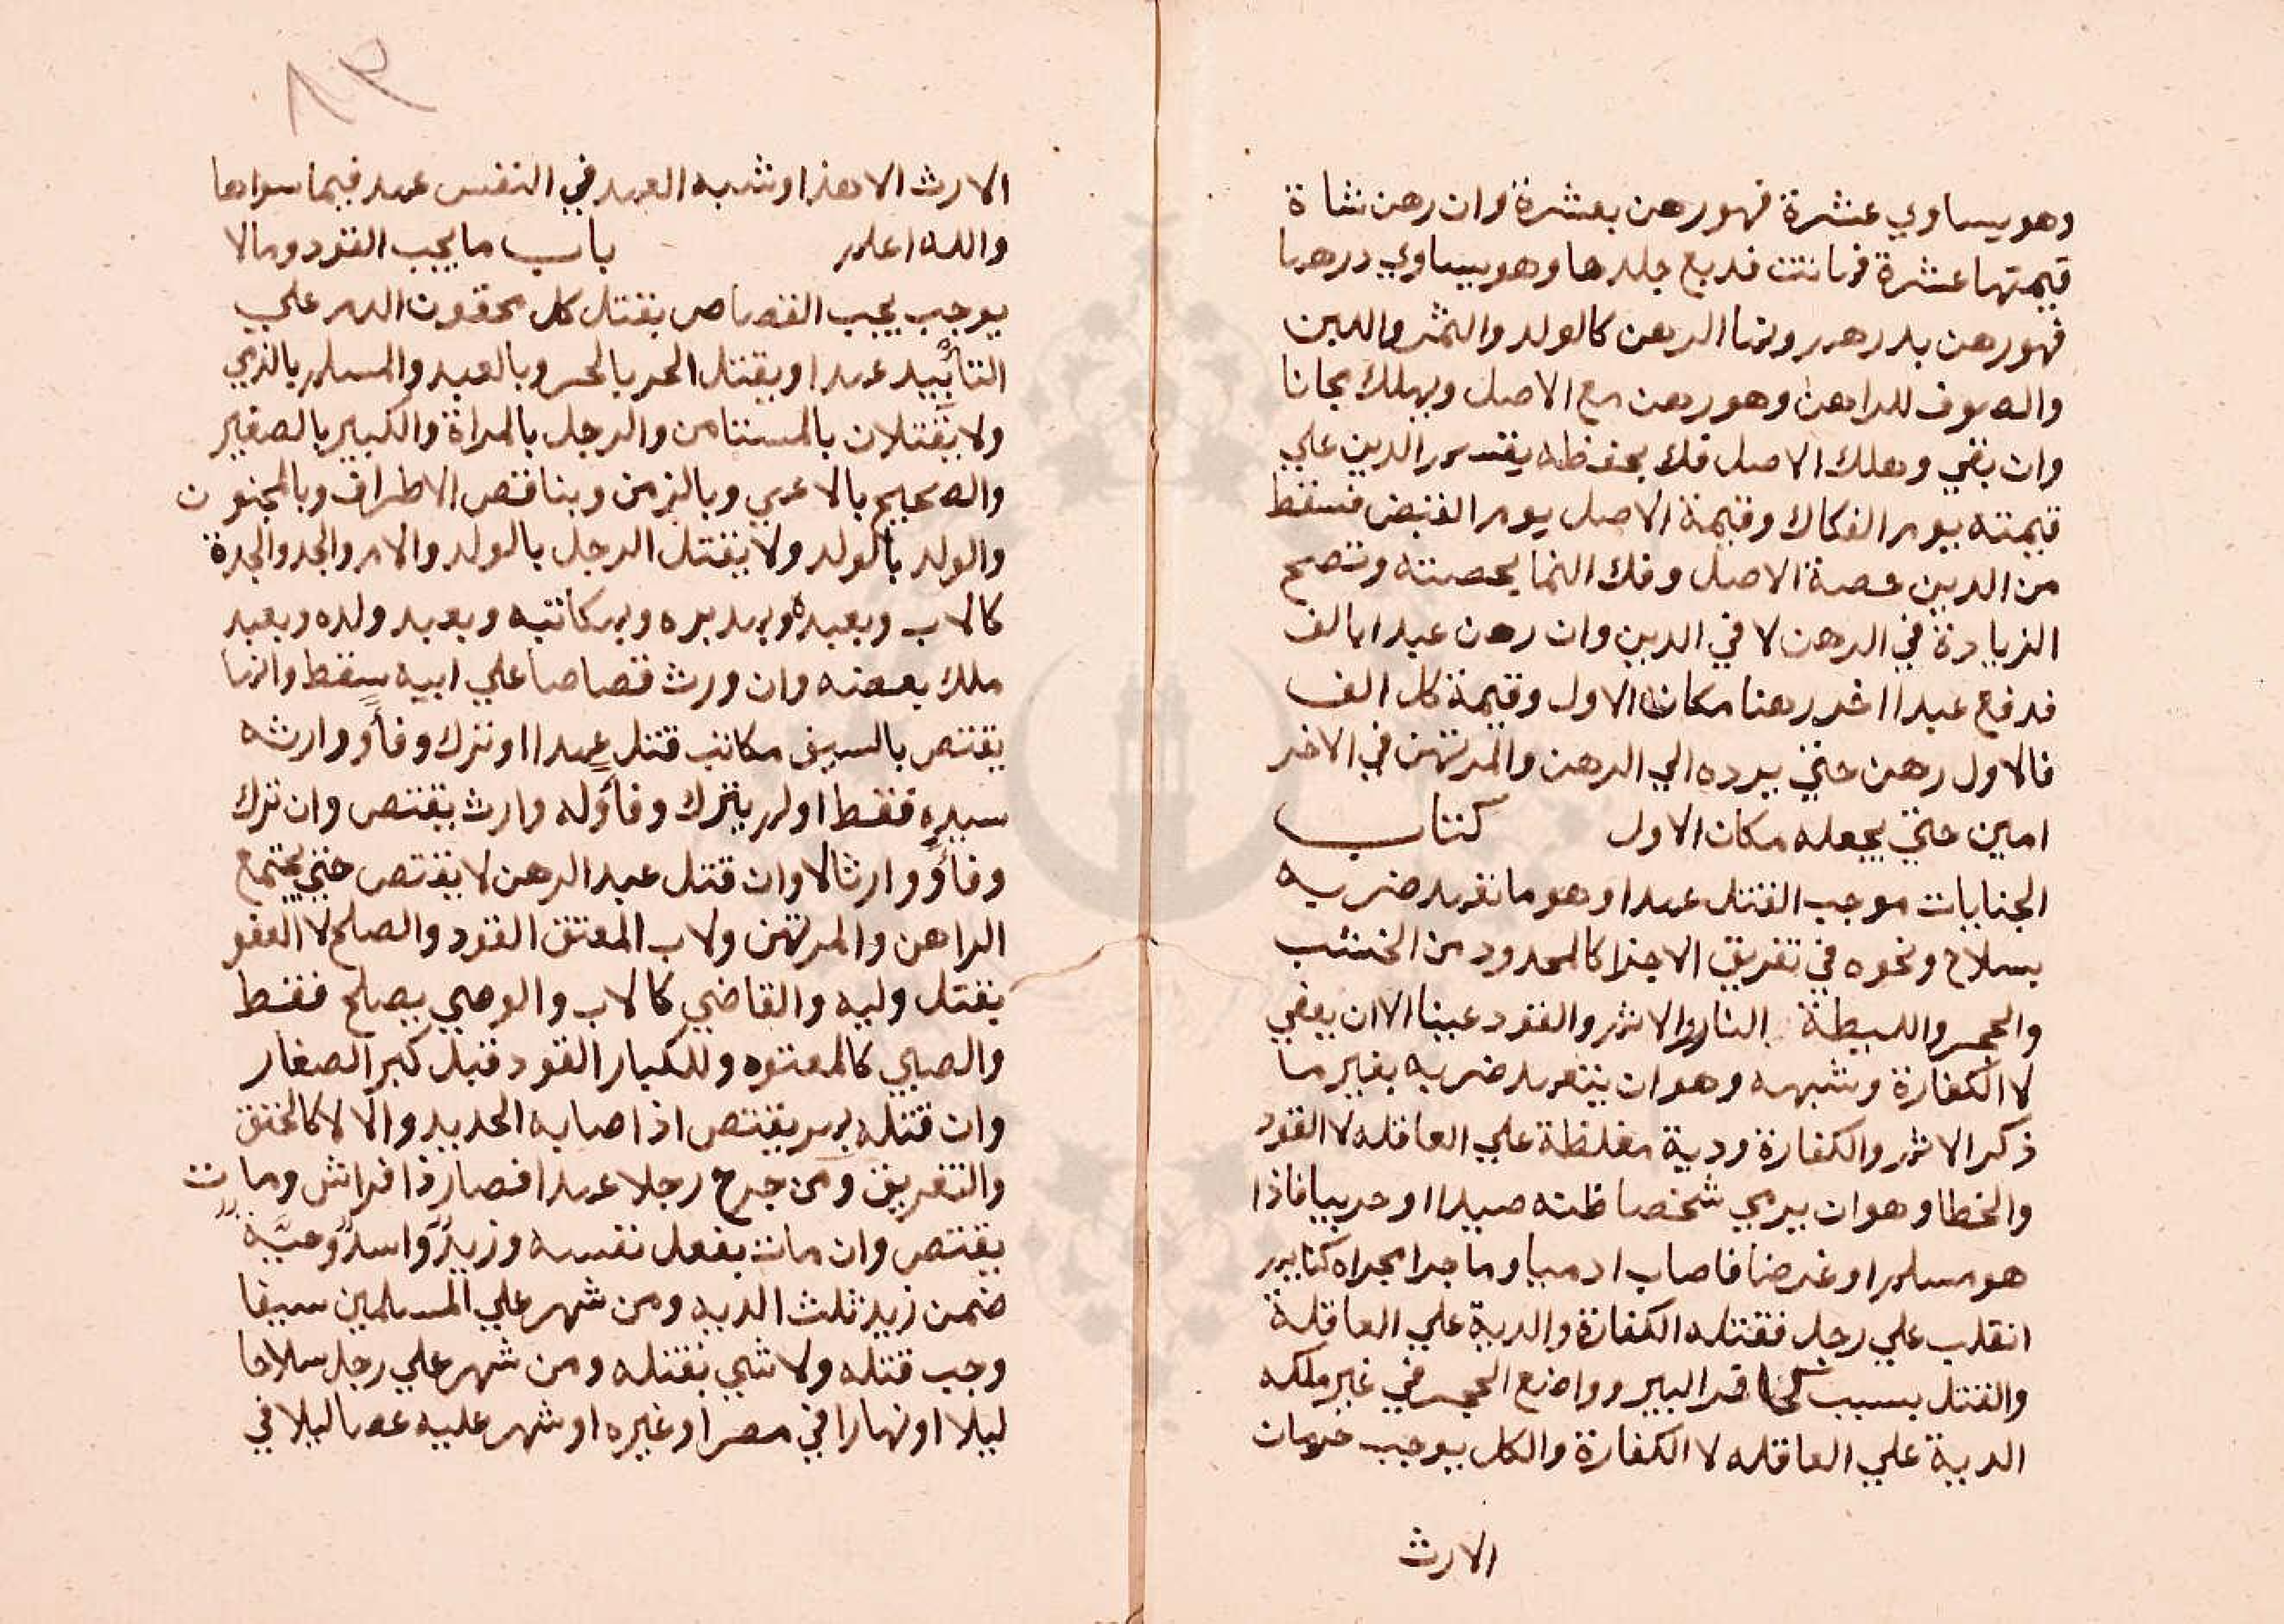 وهو يساوي عشرة فهو رهن بعشرة وان رهن شاة
قيمتها عشرة فماتت فدبع جلدها وهو يساوي درهما
فهو رهن بدرهم ونما الرهن كالولد والثمر واللبن
والصوف للراهن وهو رهن مع الاصل ويهلك مجانا
وان بقي وهلك الاصل فك بحفظه يقسم الدين علي
قيمته يوم الفكاك وقيمة الاصل يوم القبض فسقط
من الدين حصة الاصل وفك النما بحصته وتصح
الزيادة في الرهن لا في الدين وان رهن عبدا بالف
فدفع عبدا اخر رهنا مكان الاول وقيمة كل الف
فالاول رهن حتي يرده الي الرهن والمرتهن في الاخر
امين حتي يجعله مكان الاول كتاب
الجنايات موجب القتل عمدا وهو ما تعمد ضربه
بسلاح ونحوه في تفريق الاجزا كالمحدود من الخشب
والحجر والليطة النار والاثم والقود عينا الا ان يعفي
لا الكفارة وشبهه وهو ان يتعمد ضربه بغير ما
ذكر الاثم والكفارة ودية مغلظة علي العاقله لا القود
والخطا وهو ان يرمي شخصا ظنه صيدا او حربيا فاذا
هو مسلم او غرضا فاصاب ادميا وما جرا مجراه كنايم
انقلب علي رجل فقتله الكفارة والدية علي العاقلة
والقتل بسبب البير وواضع الحجر في غير ملكه
الدية علي العاقله لا الكفارة والكل يوجب حرمان
الارث
الارث الا هذا وشبه العمد في النفس عمد فيما سواها
والله اعلم باب ما يجب القود وما لا
يوجب يجب القصاص بقتل كل محقون الدم علي
التأبيد عمدا ويقتل الحر بالحر وبالعبد والمسلم بالذمي
ولا يقتلان بالمستامن والرجل بالمراة والكبير بالصغير
والصحيح بالاعمي وبالزمن وبناقص الاطراف وبالمجنون
والولد بالولد ولا يقتل الرجل بالولد والام والجد والجدة
كالاب وبعبده وبمدبره وبمكاتبه وبعبد ولده وبعبد
ملك بعضه وان ورث قصاصا علي ابيه سقط وانما
يقتص بالسيف مكاتب قتل عمدا وترك وفاء ووارثه
سيده فقط اولم يترك وفاء وله وارث يقتص وان ترك
وفاء ووارثا لا وان قتل عبد الرهن لا يقتص حتي يجتمع
الراهن والمرتهن ولاب المعتق القود والصلح لا العفو
بقتل وليه والقاضي كالاب والوصي يصلح فقط
والصبي كالمعتوه وللكبار القود قبل كبر الصغار
وان قتله بمر يقتص اذا صابه الحديد والا لا كالخنق
والتغريق ومن جرح رجلا عمدا فصار ذا فراش ومات
يقتص وان مات بفعل نفسه وزيد واسد وحية
ضمن زيد ثلث الديه ومن شهر علي المسلمين سيفا
وجب قتله ولا شي بقتله ومن شهر علي رجل سلاحا
ليلا او نهارا في مصر او غيره او شهر عليه عصا ليلا في